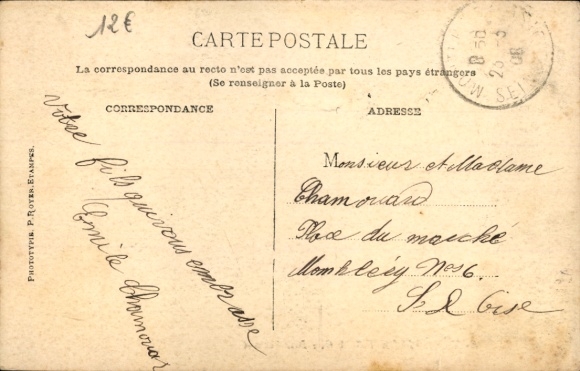 12€
CARTE POSTALE
La correspondance au recto n'est pas acceptée par tous les pays étrangers
(Se renseigner à la Poste)
CORRESPONDANCE
ADRESSE
8 50
25 - 5
08
SEI
Votre fils qui vous embrasse
Emile Chamouar
Monsieur et Madame
Chamouard
Place du marche
Montlhéry Nos 6.
S et Oise
PHOTOTYPIE. P. ROYER. ETAMPES.